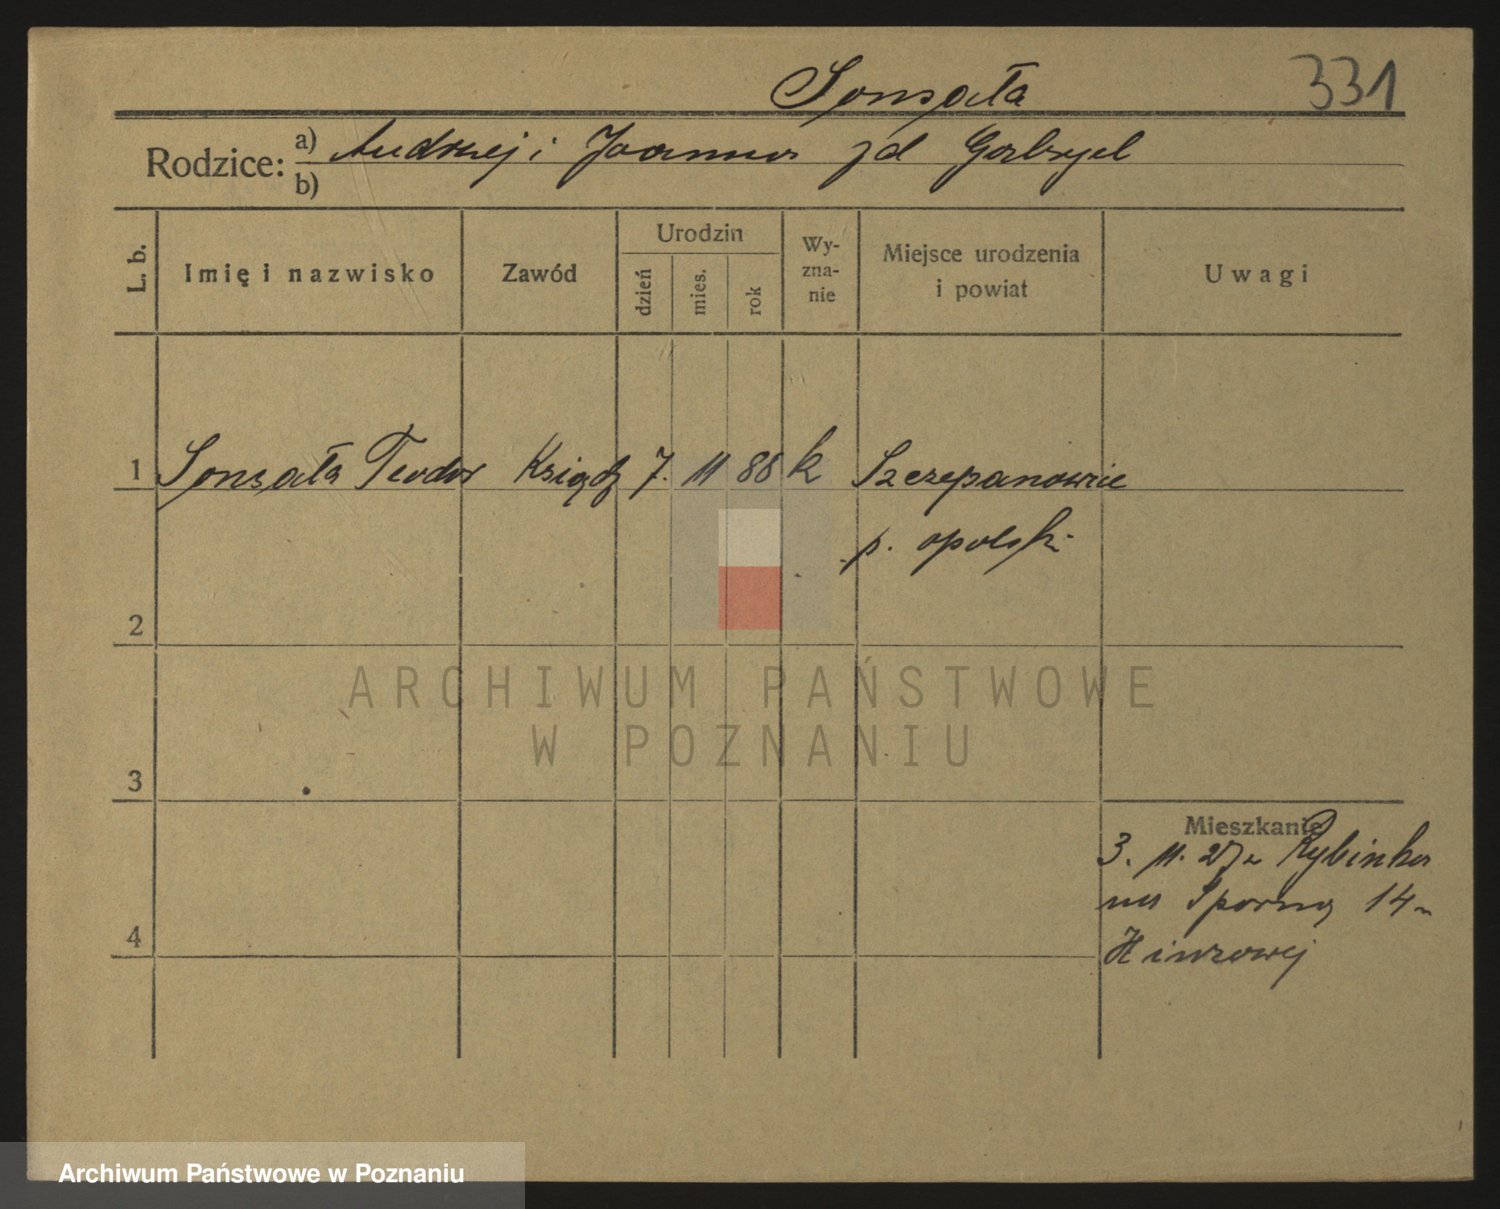 Sonsała 331
Rodzice: a) Andrzej i Joanna zd Gabryel
b)
L. b. Imię i nazwisko Zawód Urodzin dzień mies. rok Wyznanie Miejsce urodzenia i powiat Uwagi
1 Sonsała Teodor Ksiądz 7. 11 88 k Szczepanowice
p. opolski
2
ARCHIWUM PAŃSTWOWE
W POZNANIU
3
Mieszkanie
3. 11. 27 z Rybinka
na Sporną 14
4
Archiwum Państwowe w Poznaniu